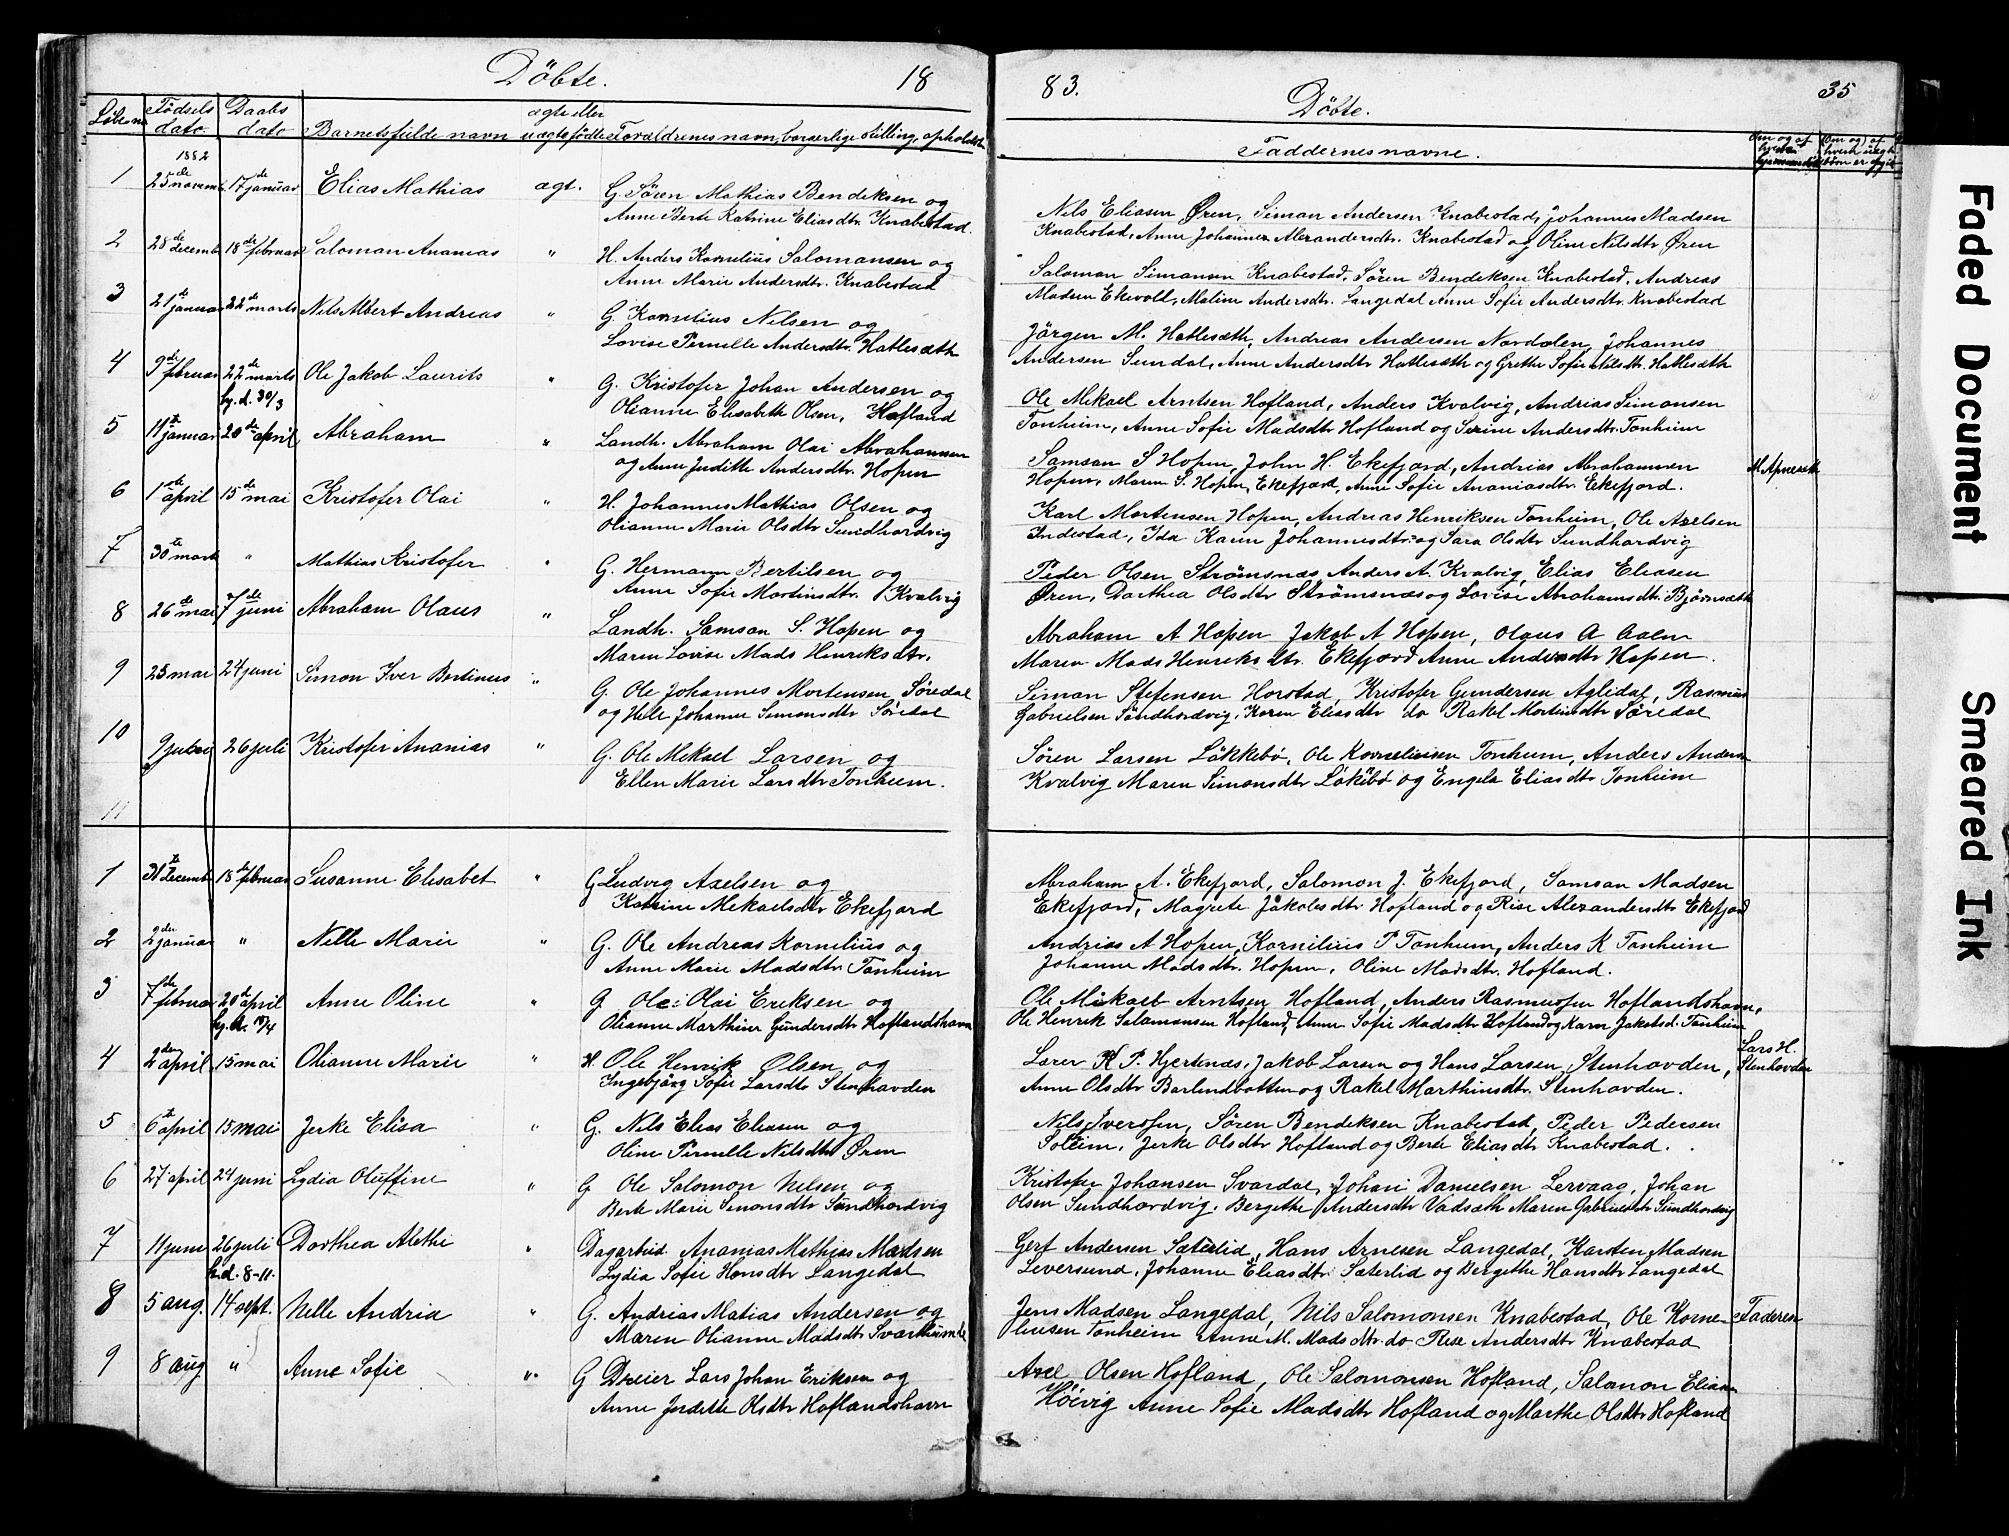 Döbte. 18
Löbe no Fødsels dato Daabs dato Barnets fulde navn ægte eller uægte fødte Forældrenes navn, borgerlige stilling, opholdst.
1882
1 25de novemb. 17de januar Elias Mathias ægt. G. Søren Mathias Bendiksen og
Anne Berte Katrine Eliasdtr. Knabestad.
2 28de decemb 18de februar Saloman Ananias " H. Anders Kornelius Salomansen og
Anne Marie Andersdtr. Knabestad
3 21de januar 22de marts Nils Albert Andreas " G. Kornelius Nilsen og
Lovise Pernille Andersdtr. Hatlesæth
4 9de februar 22de marts Ole Jakob Laurits " G. Kristofer Johan Andersen og
hj. d. 30/3 Olianne Elisabeth Olsen, Hofland
5 11te januar 20de april Abraham " Landh. Abraham Olai Abrahamsen
og Anne Judithe Andersdtr. Hopen
6 1ste april 15de mai Kristofer Olai " H. Johannes Mathias Olsen og
Olianne Marie Olsdtr Sundhordvig
7 30te marts " Mathias Kristofer " G. Hermann Bertilsen og
Anne Sofie Martinsdtr. Kvalvig
8 26de mai 7de juni Abraham Olaus " Landh. Samson S. Hopen og
Maren Lovise Mads Henriksdtr.
9 25 mai 24 juni Simon Iver Bertinus " G. Ole Johannes Mortensen Søredal
og Hele Johanne Simonsdtr Søredal
10 9 juli 26 juli Kristofer Ananias " G. Ole Mekael Larsen og
Ellen Marie Larsdtr Tonheim.
11
1 31te decemb 18de februar Susanne Elisabet " G Ludvig Axelsen og
Katrine Mekaelsdtr Ekefjord
2 2den januar " Nelle Marie " G. Ole Andreas Kornelius og
Anne Marie Madsdtr Tonheim
3 7de februar 20de april Anne Oline " G Ole Olai Eriksen og
hj. d. 15/4 Olianne Marthine Gundersdtr Hoflandshavn
4 2den april 15 mai Olianne Marie " H Ole Henrik Olsen og
Ingebjørg Sofie Larsdtr Stenhovden
5 6te april 15 mai Jerke Elisa " G. Nils Elias Eliasen og
Oline Pernelle Nilsdtr Øren
6 27 april 24 juni Lydia Oluffine " G Ole Salomon Nelsen og
Berte Marie Simonsdtr Sundhordvig
7 11 juni 26 juli Dorthea Alethe " Dagarbeid. Ananias Mathias Madsen
h.d. 8-11. Lydia Sofie Hansdtr Langedal
8 5 aug. 14 sept. Nelle Andria " G. Andrias Matias Andersen og
Maren Olianne Madsdtr Svarthumle
9 8 aug " Anne Sofie " G Dreier Lars Johan Eriksen og
Anne Judithe Olsdtr Hoflandshavn
83. Döbte. 35
Faddernes navne.
Nils Eliasen Øren, Simon Andersen Knabestad, Johannes Madsen
Knabestad, Anne Johanne Alexandersdtr. Knabestad og Oline Nilsdtr Øren
Saloman Simonsen Knabestad, Søren Bendiksen Knabestad, Andreas
Madsen Ekevoll, Maline Andersdtr. Langedal Anne Sofie Andersdtr. Knabestad
Jörgen M. Hatlesæth, Andreas Andersen Nordalen, Johannes
Andersen Sundal, Anne Andersdtr Hatlesæth og Grethe Sofie Nilsdtr. Hatlesæth
Ole Mikael Arntsen Hofland, Anders Kvalvig, Andrias Simonsen
Tonheim, Anne Sofie Madsdtr Hofland og Serine Andersdtr. Tonheim
Samson S Hopen, John H. Ekefjord, Andrias Abrahamsen
Hopen, Maren S. Hopen, Ekefjord, Anne Sofie Ananiasdtr. Eekefjord.
Karl Mortensen Hopen, Andrias Henriksen Tonheim, Ole Axelsen
Indestad, Ida Karine Johannesdtr. og Sara Olsdtr Sundhordvig
Peder Olsen Strømsnæs, Anders A. Kvalvig, Elias Eliasen
Øren, Dorthea Olsdtr Strømsnæs og Lovise Abrahamsdtr. Bjørnsæth
Abraham A Hopen Jakob A Hopen, Olaus A Aalen
Maren Mads Henriksdtr. Ekefjord Anne Andersdtr Hopen.
Simon Stefensen Horstad, Kristofer Gundersen Aglidal, Rasmus
Gabrielsen Søndhordvig, Karen Eliasdtr do Rakel Mortensdtr Søredal
Søren Larsen Løkkebø, Ole Korneliusen Tonheim, Anders Anders
Kvalvig Maren Simonsdtr Løkebø og Engela Eliasdtr Tonheim
Abraham A. Ekefjord, Salomon J. Ekefjord, Samson Madsen
Ekefjord, Magrete Jakobsdtr Hofland og Rise Alexandersdtr Ekefjord
Andrias A Hopen, Kornilius P Tonheim, Anders K Tonheim
Johanne Madsdtr. Hopen, Oline Madsdtr. Hofland.
Ole Mikael Arntsen Hofland, Anders Rasmussen Hoflandshavn,
Ole Henrik Salamonsen Hofland, Anne Sofie Madsdtr Hofland og Karen Jakobsd. Tonheim
Lærer R P. Hjertnæs, Jakob Larsen og Hans Larsen Stenhovden, Lars H. Stenhovden
Anne Olsdtr Barlindbotten og Rakel Marthinsdtr. Stenhovden.
Nils Iversen, Søren Bendeksen Knabestad, Peder Pedersen
Soleim, Jerke Olsdtr Hofland og Berte Eliasdtr Knabestad.
Kristofer Johansen Svardal, Johan Danielsen Lervaag, Johan
Olsen Sundhordvig, Bergithe Andersdtr Vadsæth Maren Gabrielsdtr Sundhordvig
Gert Andersen Sæterlid, Hans Arnesen Langedal, Karsten Madsen
Leversund, Johanne Eliasdtr Sæterlid og Bergethe Hansdtr Langedal
Jens Madsen Langedal, Nils Salomonsen Knabestad, Ole Korne- Faderen
liusen Tonheim Anne M. Madsdtr do Rise Andersdtr Knabestad
Axel Olsen Hofland, Ole Salomonsen Hofland, Salamon Eliasen
Höivig Anne Sofie Madsdtr Hofland og Marthe Olsdtr Hofland
Faded Document
Smeared Ink